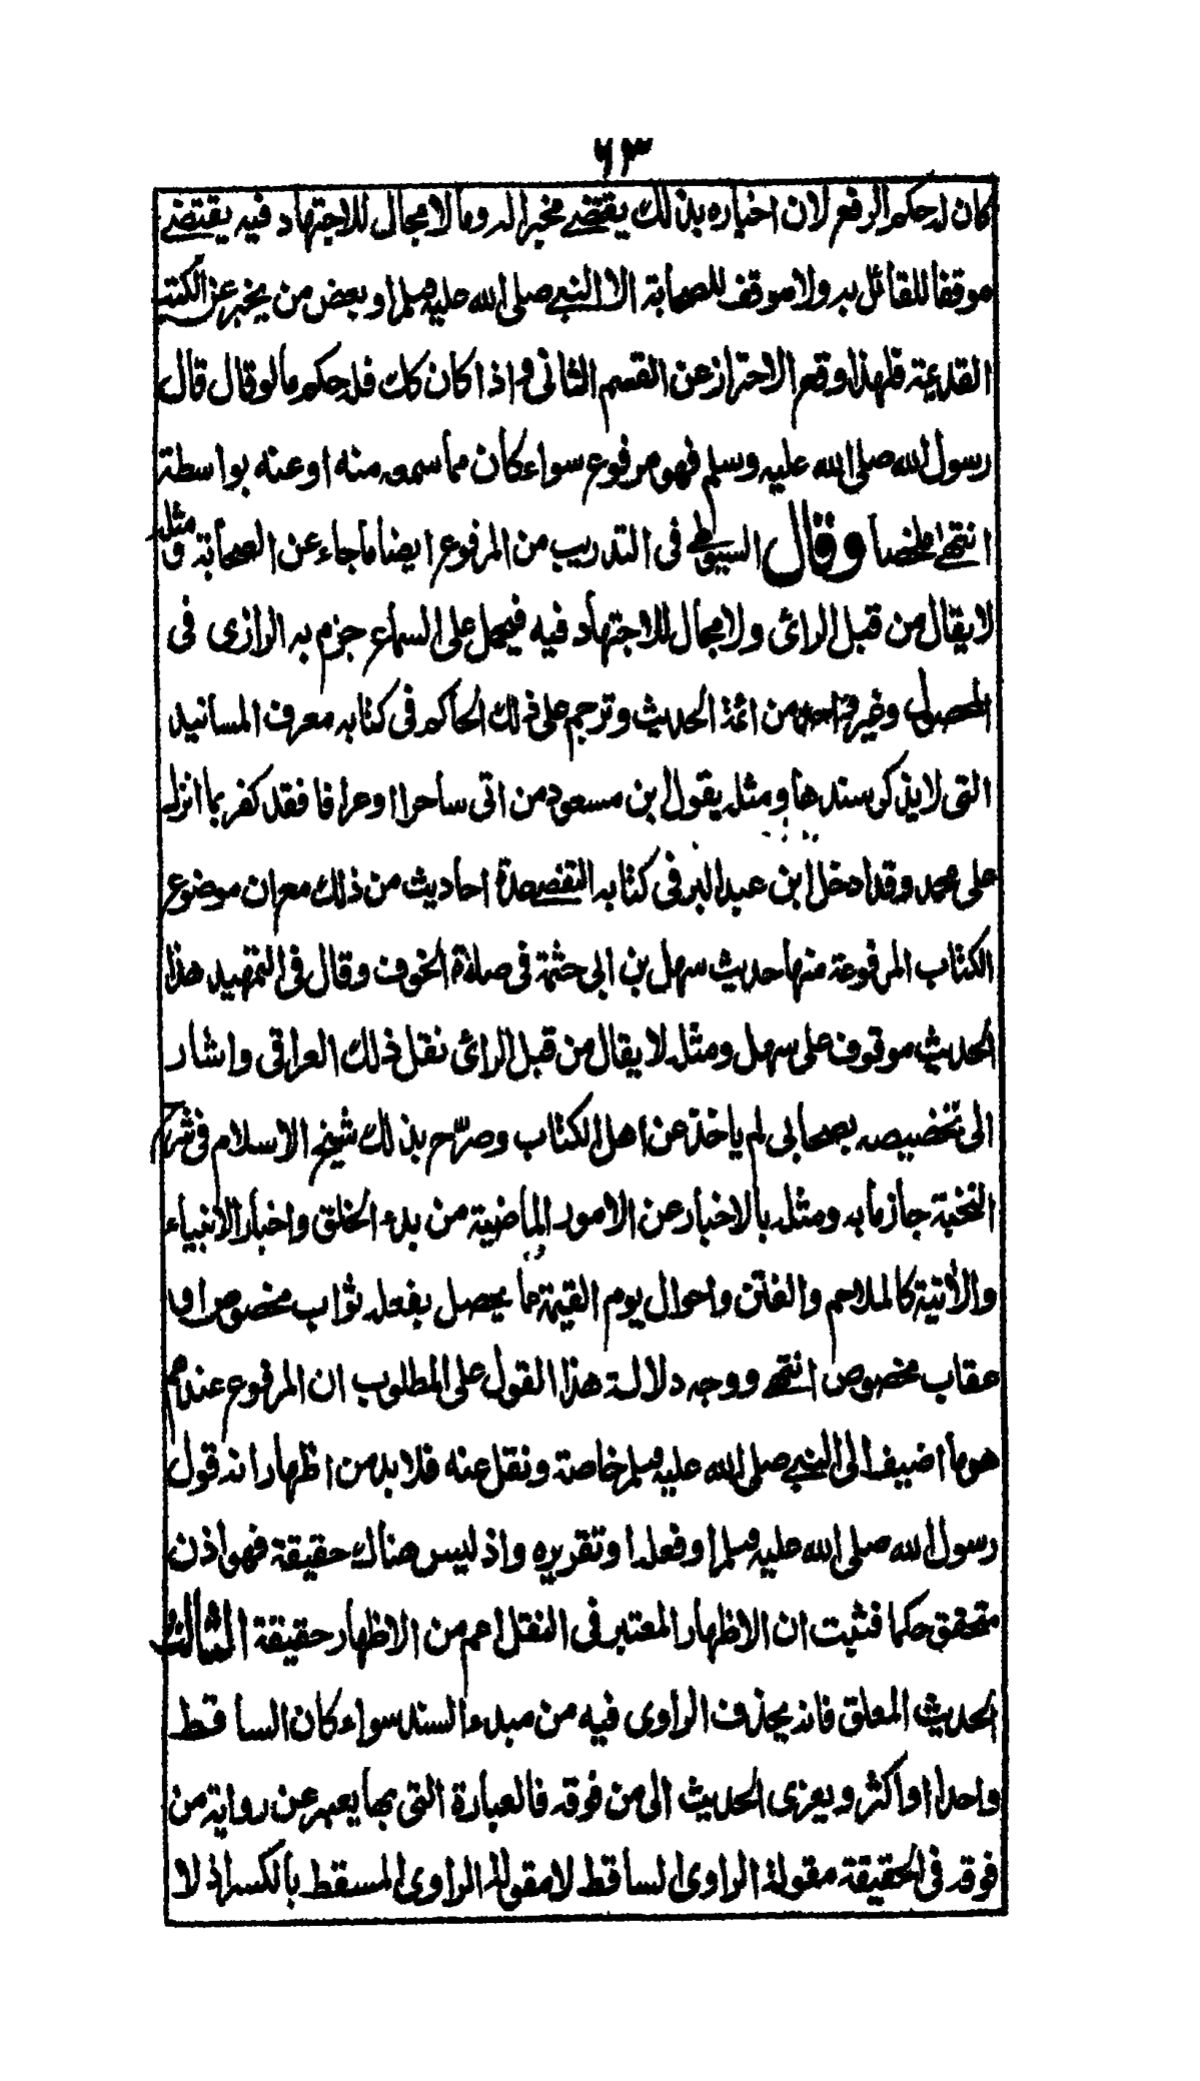 ٦٣
كان له حكم الرفع لان اخباره بذلك يقتضے مخبرا له وما لا مجال للاجتهاد فيه يقتضے
موقفا للقائل به ولا موقف للصحابة الا النبے صلى الله عليه وسلم او بعض من يخبر عن الكتب
القديمة فلهذا وقع الاحتراز عن القسم الثانى واذا كان كك فله حكم ما لو قال قال
رسول الله صلى الله عليه وسلم فهو مرفوع سواء كان مما سمعه منه او عنه بواسطة
انتهے ملخصا وقال السيوطے فى التدريب من المرفوع ايضا ما جاء عن الصحابة و مثله
لا يقال من قبل الرائ ولا مجال للاجتهاد فيه فيحمل على السماع جزم به الرازى فى
المحصول وغير واحد من ائمة الحديث وترجم على ذلك الحاكم فى كتابه معرف المسانيد
التى لا يذكر سندها ومثله يقول ابن مسعود من اتى ساحرا او عرافا فقد كفر بما انزل
على محمد وقد ادخل ابن عبد البر فى كتابه التقصے عدة احاديث من ذلك مع ان موضوع
الكتاب المرفوعة منها حديث سهل بن ابى حثمة فى صلاة الخوف وقال فى التمهيد هذا
الحديث موقوف على سهل ومثله لا يقال من قبل الرائ نقل ذلك العراقى واشار
الى تخصيصه بصحابى لم ياخذ عن اهل الكتاب وصرّح بذلك شيخ الاسلام فى شرح
النخبة جازما به ومثله بالاخبار عن الامور الماضية من بدء الخلق واخبار الانبياء
والاٰتية كالملاحم والفتن واحوال يوم القيمة وعما يحصل بفعله ثواب مخصوص او
عقاب مخصوص انتهے ووجه دلالة هذا القول على المطلوب ان المرفوع عندهم
هو ما اضيف الى النبے صلى الله عليه وسلم خاصة ونقل عنه فلا بد من اظهار انه قول
رسول الله صلى الله عليه وسلم او فعله او تقريره واذ ليس هناك حقيقة فهو اذن
متحقق حكما فثبت ان الاظهار المعتبر فى النقل اعم من الاظهار حقيقة الثالث
الحديث المعلق فانه يحذف الراوى فيه من مبدء السند سواء كان الساقط
واحدا او اكثر ويعزى الحديث الى من فوقه فالعبارة التى بها يعبر عن رواية من
فوقه فى الحقيقة مقولة الراوى الساقط لا مقولة الراوى المسقط بالكسر اذ لا